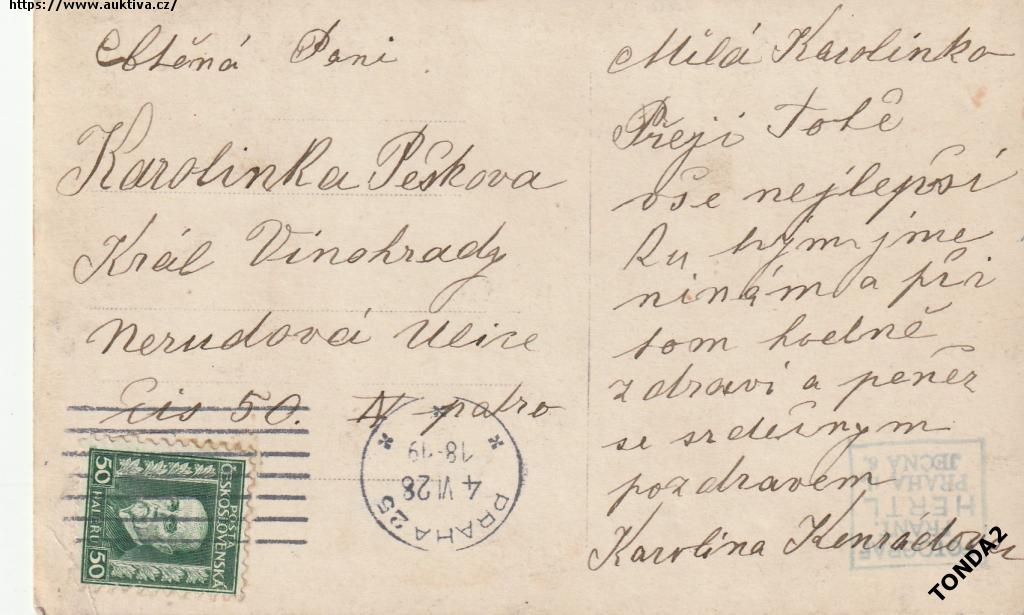 https://www.auktiva.cz/
Ctěná Pani
Karolinka Pěškova
Král Vinohrady
Nerudová Ulice
Čis 50. IV patro
Milá Karolinko
Přeji Tobě
vše nejlepší
Ku tvým jme
ninám a při
tom hodně
zdraví a peněz
se srdečnym
pozdravem
Karolina Konrádova
PRAHA 25
4 VI 28
18-19
POŠTA
ČESKOSLOVENSKÁ
50 HALÉŘŮ 50
FOTOGRAF
FRANT.
HERTL
PRAHA
JEČNÁ 6.
TONDA2